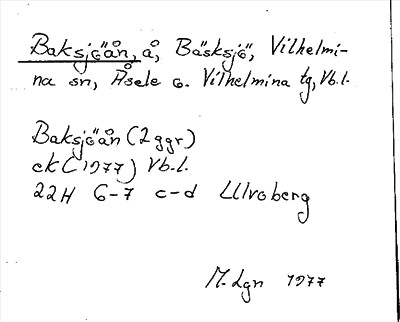 Baksjöån, å, Bäsksjö, Vilhelmi-
na sn, Åsele o. Vilhelmina tg, Vb.l.
Baksjöån (2ggr)
ek (1977) Vb.l.
22H 6-7 c-d Ulvoberg
M. Lgn 1977